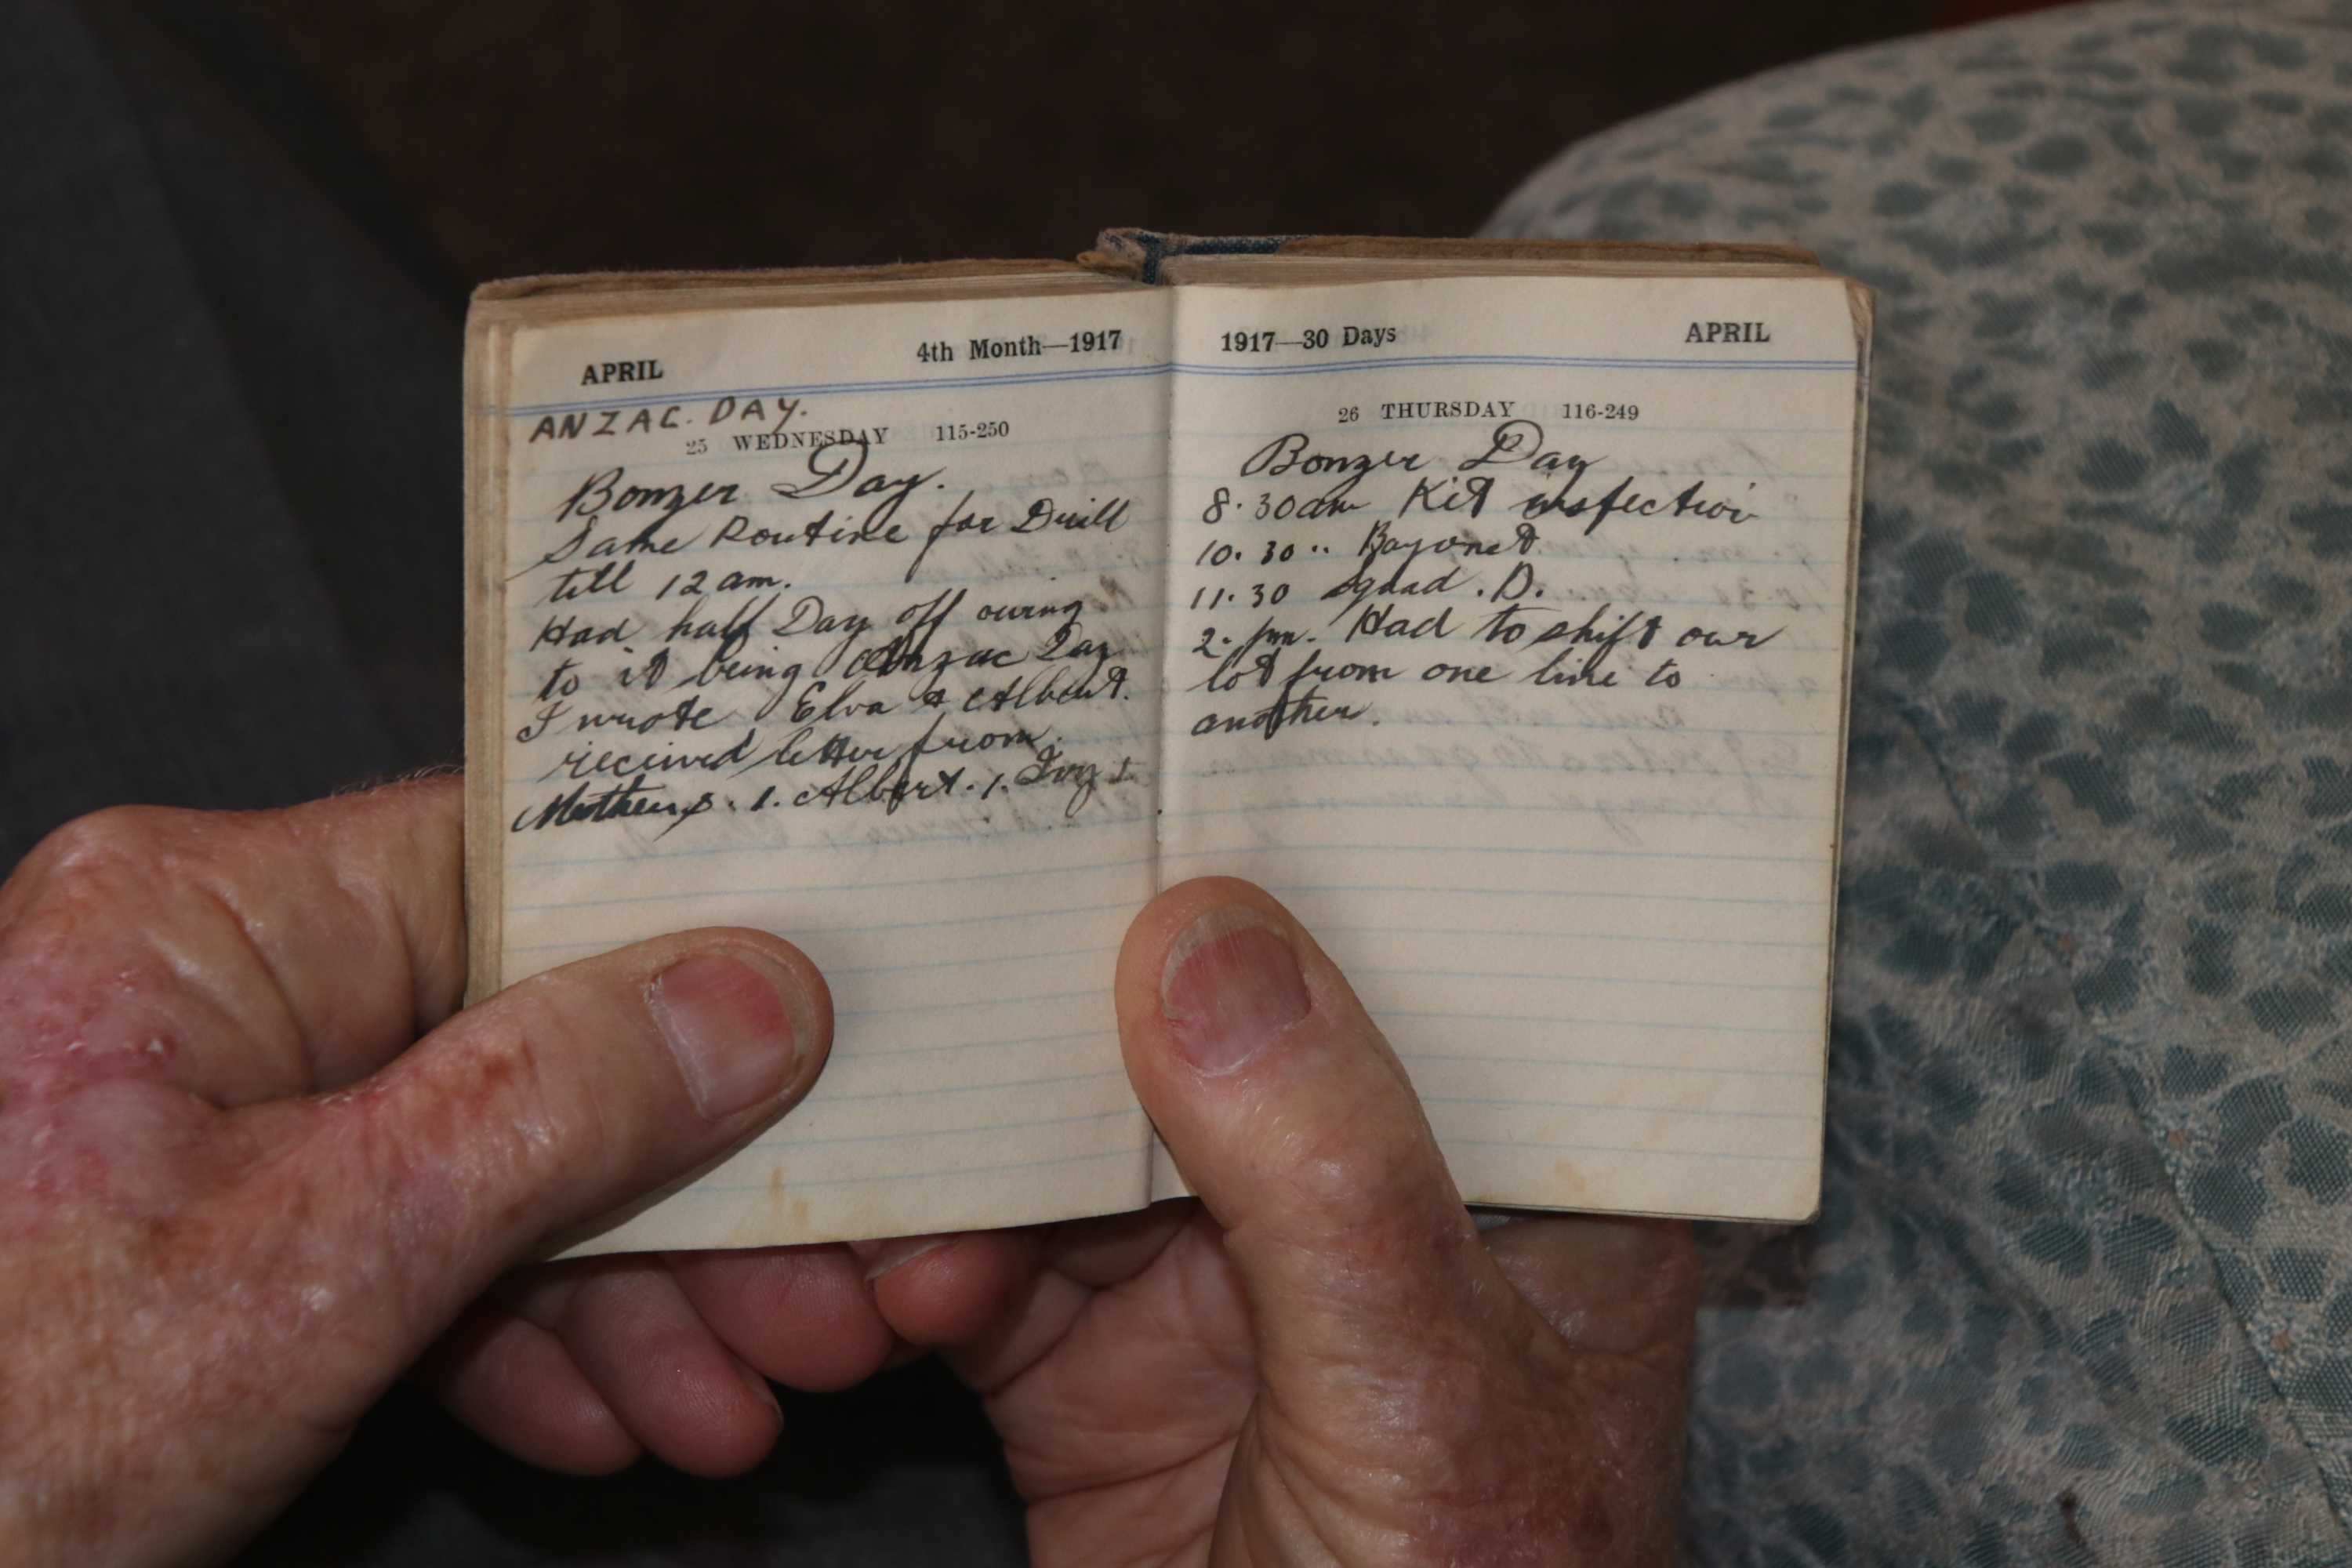 APRIL 4th Month—1917
ANZAC. DAY.
25 WEDNESDAY 115-250
Bonzer Day.
Same Routine for Drill
till 12 am.
Had half Day off owing
to it being Anzac Day
I wrote Elva & Albert.
received letter from.
1. Albert. 1. Ivy 1
1917—30 Days APRIL
26 THURSDAY 116-249
Bonzer Day
8.30am Kit inspection
10.30 " Bayonet
11.30 Squad. D.
2. pm. Had to shift our
lot from one line to
another.